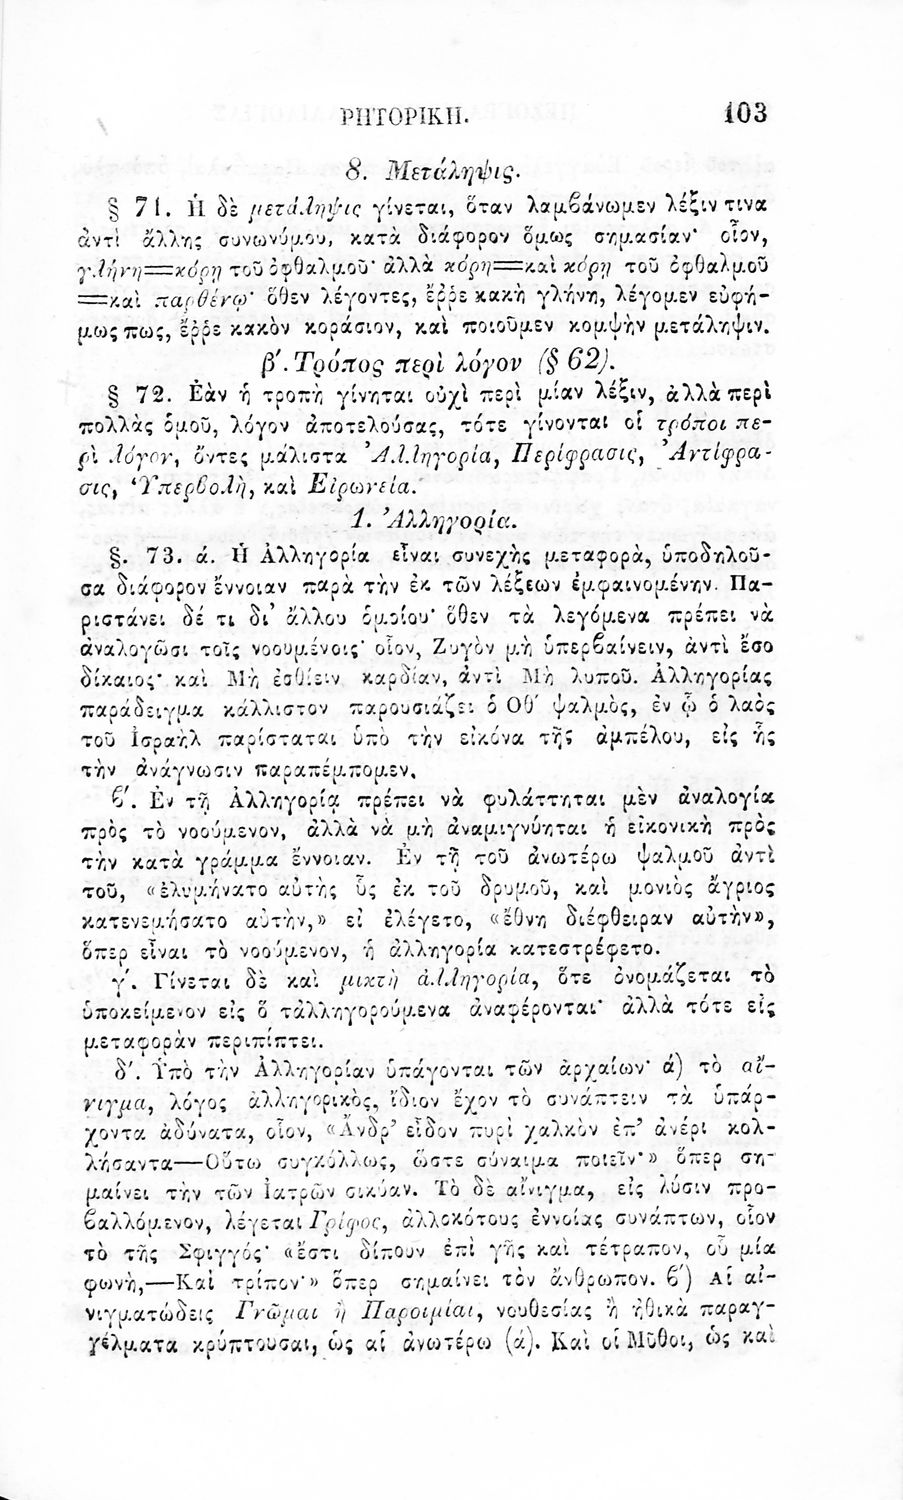 ΡΗΤΟΡΙΚΗ. 103
8. Μετάληψις.
§ 71. Ἡ δὲ μετάληψις γίνεται, ὅταν λαμβάνωμεν λέξιν τινα
ἀντὶ ἄλλης συνωνύμου, κατὰ διάφορον ὅμως σημασίαν· οἷον,
γλήνη=κόρη τοῦ ὀφθαλμοῦ· ἀλλὰ κόρη=καὶ κόρη τοῦ ὀφθαλμοῦ
=καὶ παρθένῳ· ὅθεν λέγοντες, ἔῤῥε κακὴ γλήνη, λέγομεν εὐφή-
μως πως, ἔῤῥε κακὸν κοράσιον, καὶ ποιοῦμεν κομψὴν μετάληψιν.
β΄. Τρόπος περὶ λόγον (§ 62).
§ 72. Ἐὰν ἡ τροπὴ γίνηται οὐχὶ περὶ μίαν λέξιν, ἀλλὰ περὶ
πολλὰς ὁμοῦ, λόγον ἀποτελούσας, τότε γίνονται οἱ τρόποι πε-
ρὶ λόγον, ὄντες μάλιστα Ἀλληγορία, Περίφρασις, Ἀντίφρα-
σις, Ὑπερβολὴ, καὶ Εἰρωνεία.
1. Ἀλληγορία.
§. 73. ά. Ἡ Ἀλληγορία εἶναι συνεχὴς μεταφορὰ, ὑποδηλοῦ-
σα διάφορον ἔννοιαν παρὰ τὴν ἐκ τῶν λέξεων ἐμφαινομένην. Πα-
ριστάνει δέ τι δι' ἄλλου ὁμοίου· ὅθεν τὰ λεγόμενα πρέπει νὰ
ἀναλογῶσι τοῖς νοουμένοις· οἷον, Ζυγὸν μὴ ὑπερβαίνειν, ἀντὶ ἔσο
δίκαιος· καὶ Μὴ ἐσθίειν καρδίαν, ἀντὶ Μὴ λυποῦ. Ἀλληγορίας
παράδειγμα κάλλιστον παρουσιάζει ὁ ΟΘ΄ ψαλμὸς, ἐν ᾧ ὁ λαὸς
τοῦ Ἰσραὴλ παρίσταται ὑπὸ τὴν εἰκόνα τῆς ἀμπέλου, εἰς ἧς
τὴν ἀνάγνωσιν παραπέμπομεν.
β΄. Ἐν τῇ Ἀλληγορίᾳ πρέπει νὰ φυλάττηται μὲν ἀναλογία
πρὸς τὸ νοούμενον, ἀλλὰ νὰ μὴ ἀναμιγνύηται ἡ εἰκονικὴ πρὸς
τὴν κατὰ γράμμα ἔννοιαν. Ἐν τῇ τοῦ ἀνωτέρω ψαλμοῦ ἀντὶ
τοῦ, «ἐλυμήνατο αὐτὴς ὗς ἐκ τοῦ δρυμοῦ, καὶ μονιὸς ἄγριος
κατενεμήσατο αὐτὴν,» εἰ ἐλέγετο, «ἔθνη διέφθειραν αὐτὴν»,
ὅπερ εἶναι τὸ νοούμενον, ἡ ἀλληγορία κατεστρέφετο.
γ΄. Γίνεται δὲ καὶ μικτὴ ἀλληγορία, ὅτε ὀνομάζεται τὸ
ὑποκείμενον εἰς ὃ τἀλληγορούμενα ἀναφέρονται· ἀλλὰ τότε εἰς
μεταφορὰν περιπίπτει.
δ΄. Ὑπὸ τὴν Ἀλληγορίαν ὑπάγονται τῶν ἀρχαίων· ά) τὸ αἴ-
νιγμα, λόγος ἀλληγορικὸς, ἴδιον ἔχον τὸ συνάπτειν τὰ ὑπάρ-
χοντα ἀδύνατα, οἷον, «Ἄνδρ' εἶδον πυρὶ χαλκὸν ἐπ' ἀνέρι κολ-
λήσαντα—Οὕτω συγκόλλως, ὥστε σύναιμα ποιεῖν·» ὅπερ ση-
μαίνει τὴν τῶν Ἰατρῶν σικύαν. Τὸ δὲ αἴνιγμα, εἰς λύσιν προ-
βαλλόμενον, λέγεται Γρίφος, ἀλλοκότους ἐννοίας συνάπτων, οἷον
τὸ τῆς Σφιγγός· «ἔστι δίπουν ἐπὶ γῆς καὶ τέτραπον, οὗ μία
φωνὴ,—Καὶ τρίπον·» ὅπερ σημαίνει τὸν ἄνθρωπον. β΄) Αἱ αἰ-
νιγματώδεις Γνῶμαι ἢ Παροιμίαι, νουθεσίας ἢ ἠθικὰ παραγ-
γέλματα κρύπτουσαι, ὡς αἱ ἀνωτέρω (ά). Καὶ οἱ Μῦθοι, ὡς καὶ